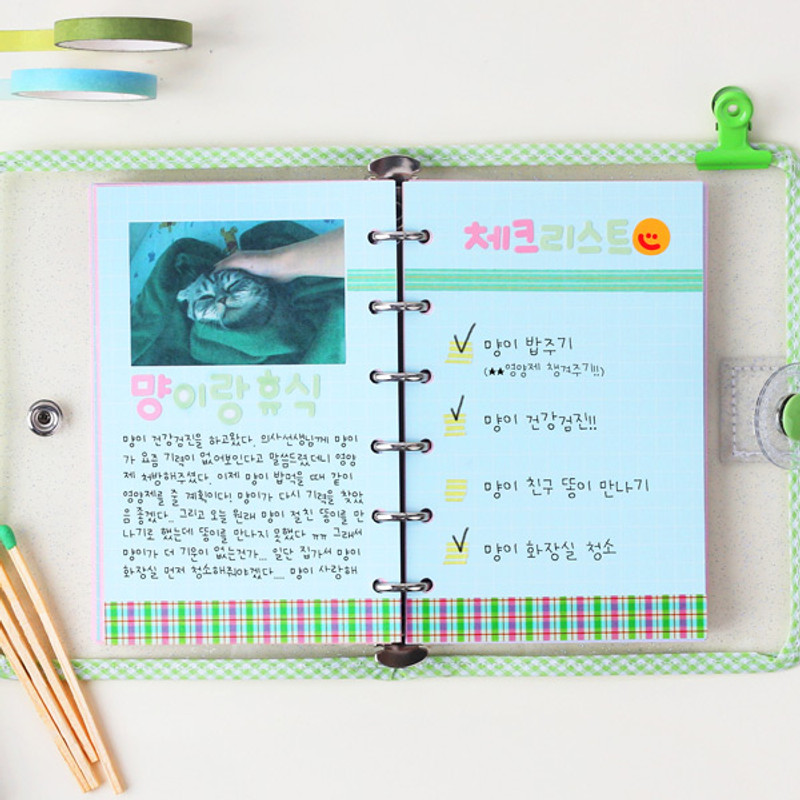 먕이랑 휴식
먕이 건강검진을 하고왔다. 의사선생님께 먕이
가 요즘 기력이 없어보인다고 말씀드렸더니 영양
제 처방해주셨다. 이제 먕이 밥먹을 때 같이
영양제를 줄 계획이다! 먕이가 다시 기력을 찾았
음 좋겠다.. 그리고 오늘 원래 먕이 절친 똥이를 만
나기로 했는데 똥이를 만나지 못했다 ㅠㅠ 그래서
먕이가 더 기운이 없는건가... 일단 집가서 먕이
화장실 먼저 청소해줘야겠다.... 먕이 사랑해
체크리스트
먕이 밥주기
(★★영양제 챙겨주기!!)
먕이 건강검진!!
먕이 친구 똥이 만나기
먕이 화장실 청소